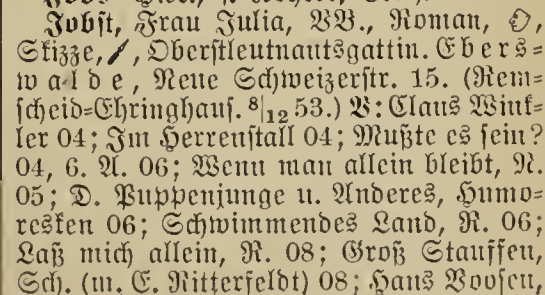 Jobst, Frau Julia, VB., Roman,
Skizze, Oberstleutnantsgattin. Ebers=
walde, Neue Schweizerstr. 15. (Rem=
scheid=Ehringhaus. 8|12 53.) V: Claus Wink=
ler 04; Im Herrenstall 04; Mußte es sein?
04, 6. A. 06; Wenn man allein bleibt, R.
05; D. Puppenjunge u. Anderes, Humo=
resken 06; Schwimmendes Land, R. 06;
Laß mich allein, R. 08; Groß Stauffen,
Sch. (m. E. Ritterfeldt) 08; Hans Boosen,